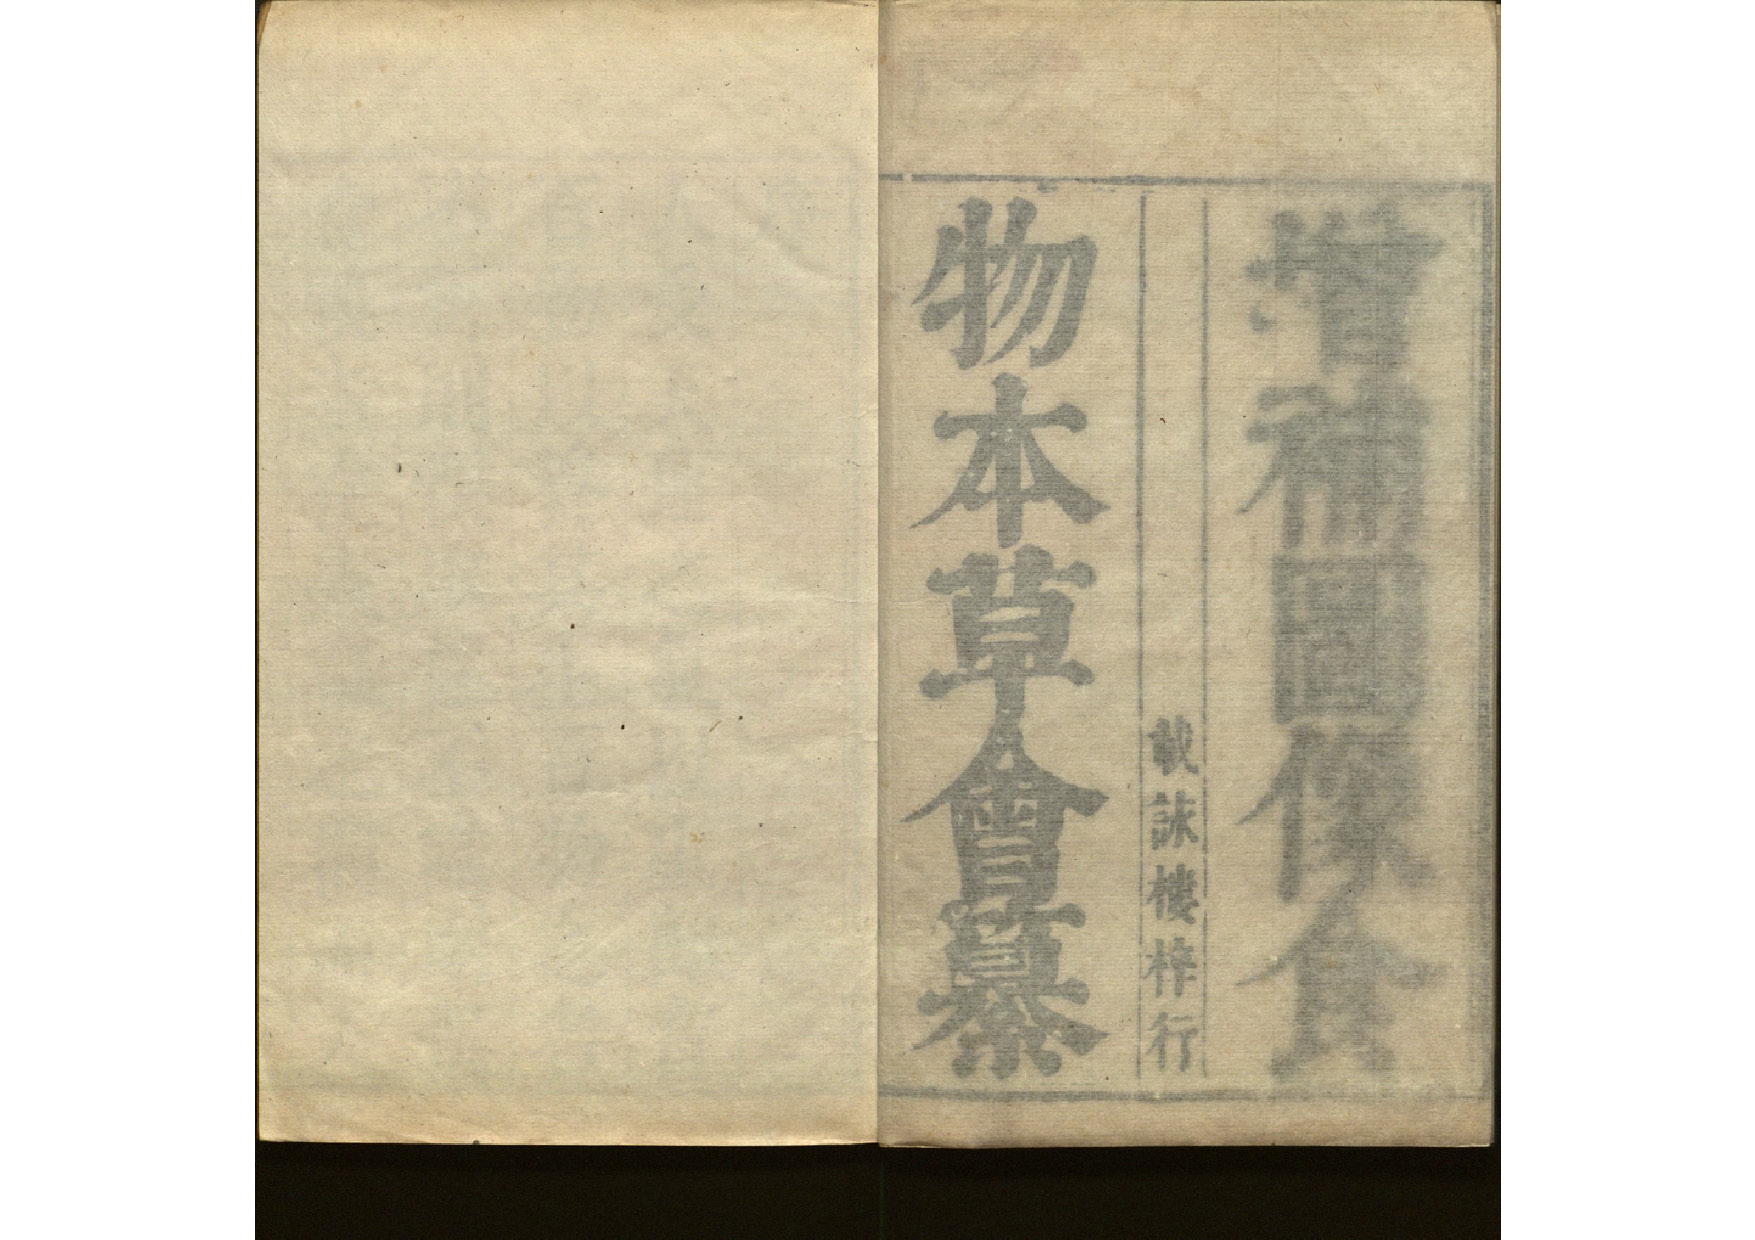 增補圖像食
物本草會纂
詠樓梓行